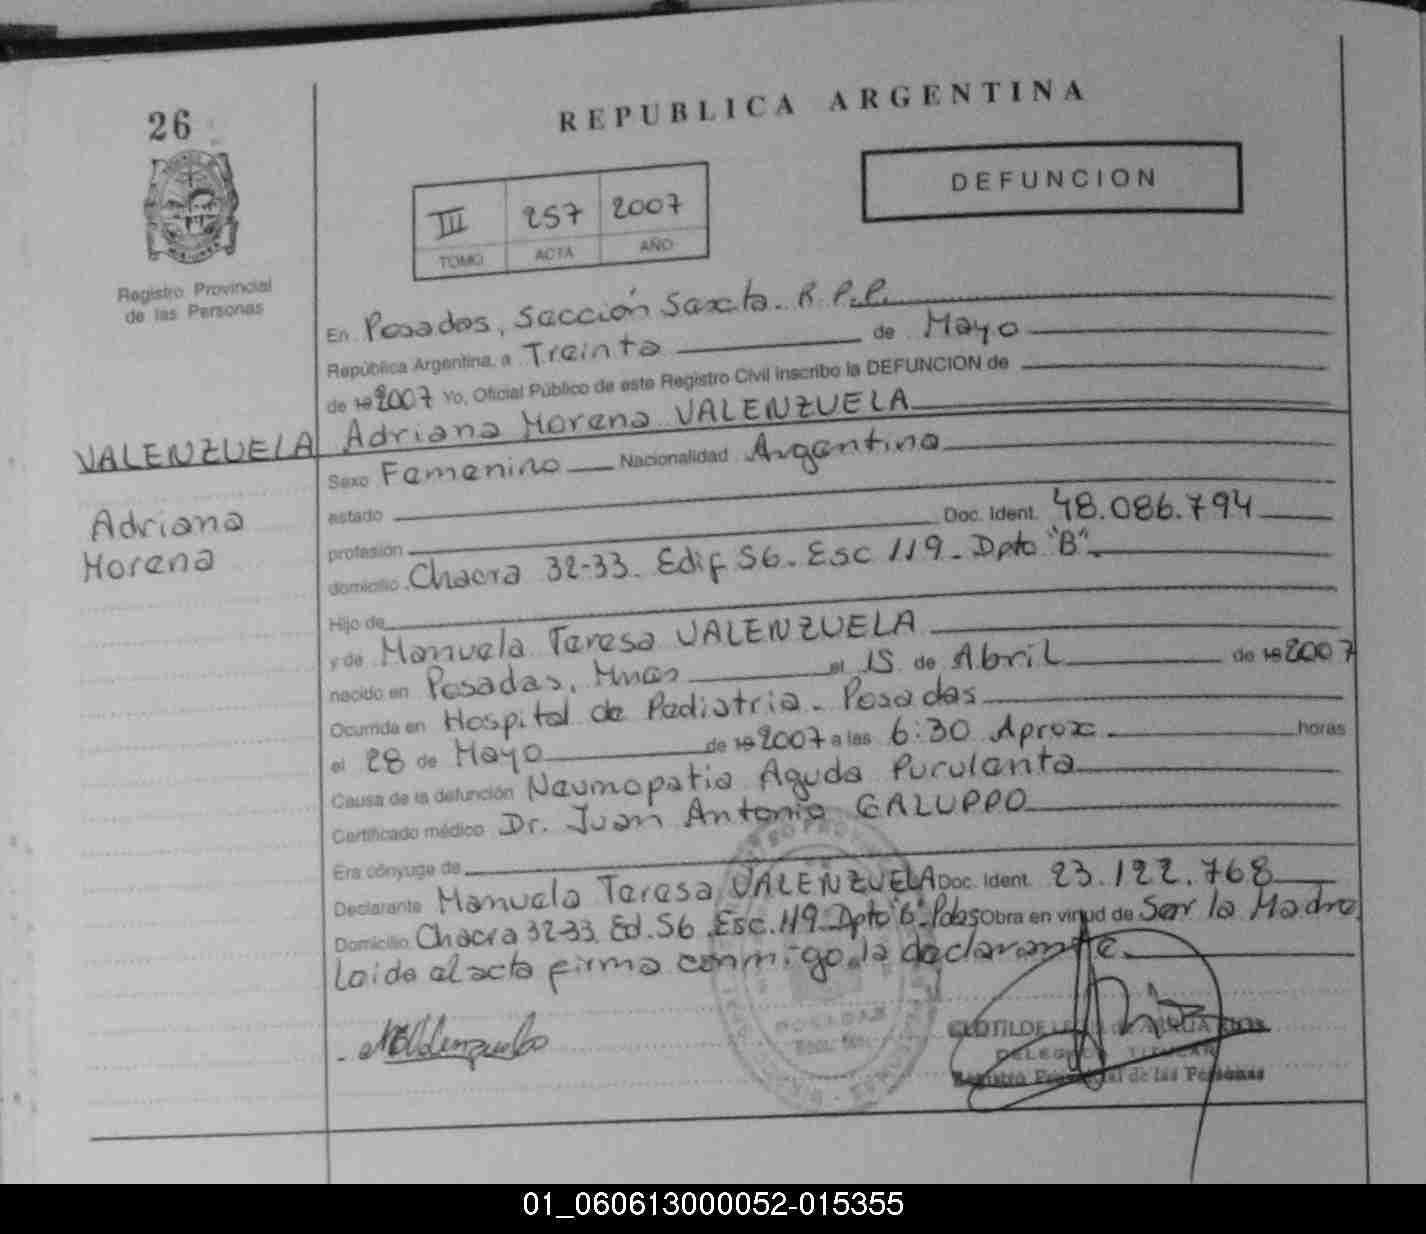 REPUBLICA ARGENTINA
26
DEFUNCION
III 257 2007
TOMO ACTA AÑO
Registro Provincial
de las Personas
En Posadas, Sección Sexta. R.P.P.
República Argentina, a Treinta de Mayo
de 19 2007 Yo, Oficial Público de este Registro Civil inscribo la DEFUNCION de
VALENZUELA Adriana Morena VALENZUELA
Adriana
Morena
Sexo Femenino Nacionalidad Argentina
estado
profesión Doc. Ident. 48.086.794
domicilio Chacra 32-33. Edif 56. Esc 119. Dpto "B".
Hijo de
y de Manuela Teresa VALENZUELA
nacido en Posadas, Mnes el 15 de Abril de 19 2007
Ocurrida en Hospital de Pediatria. Posadas
el 28 de Mayo de 19 2007 a las 6:30 Aprox. horas
Causa de la defunción Neumopatia Aguda Purulenta
Certificado médico Dr. Juan Antonio GALUPPO
Era cónyuge de
Declarante Manuela Teresa VALENZUELA Doc. Ident. 23.122.768
Domicilio Chacra 32-33. Ed. 56. Esc. 119. Dpto "B". Pdas Obra en virtud de Ser la Madre.
Leida el acta firma conmigo la declarante.
CLOTILDE
DELEGADO TITULAR
Registro Provincial de las Personas
POSADAS
01_060613000052-015355